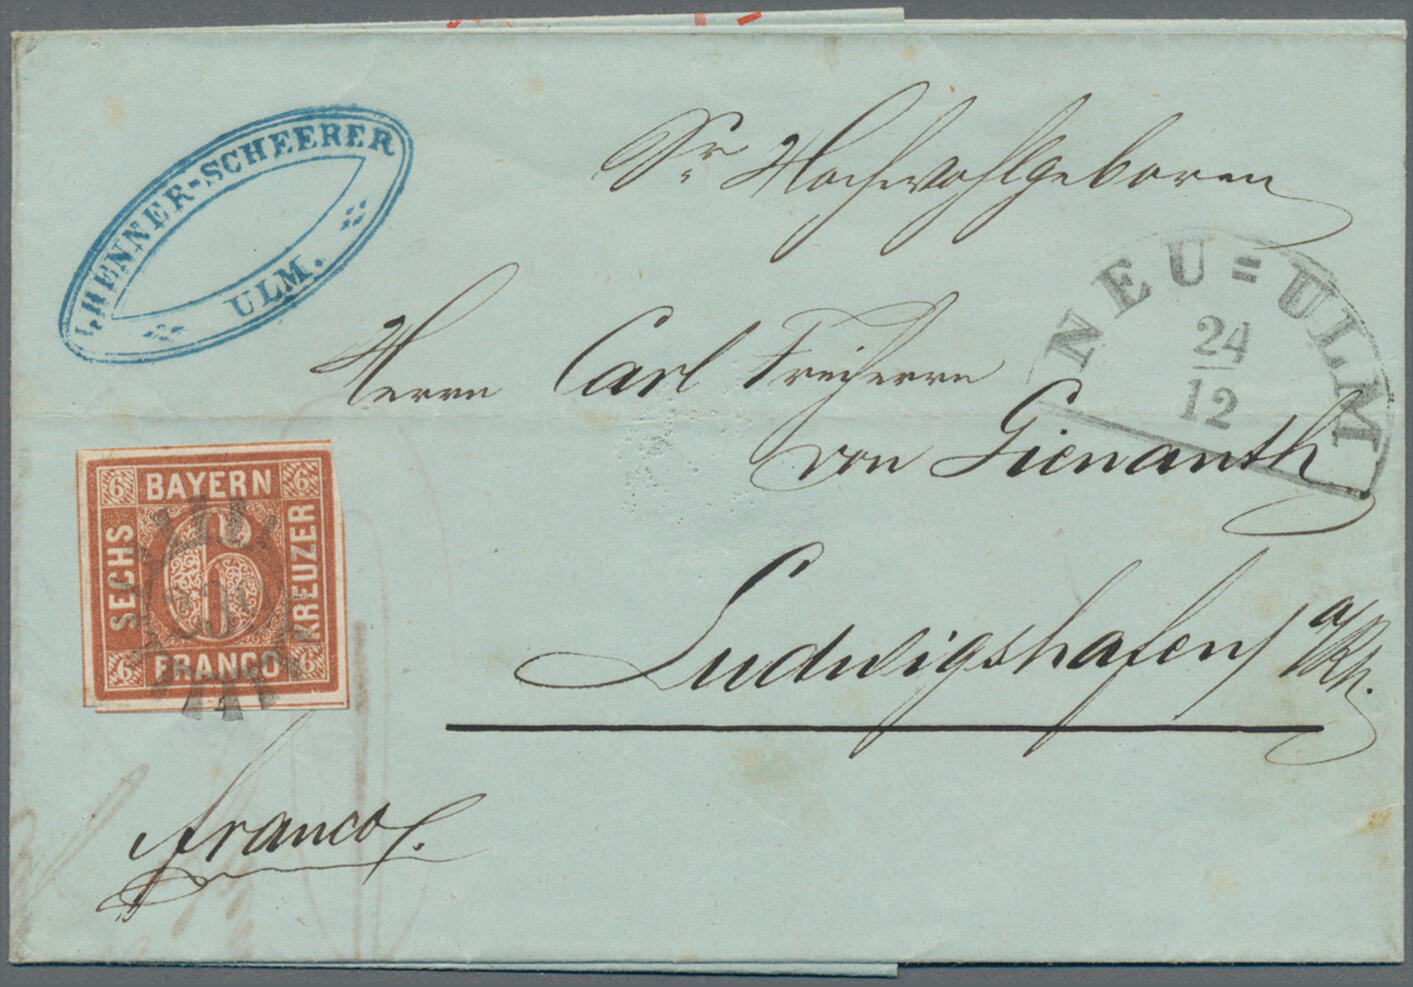 HENNER-SCHEERER
ULM.
Sr Hochwohlgeboren
Herrn Carl Freiherrn
von Gienanth
Ludwigshafen a/Rh.
franco
NEU=ULM
24
12
6 BAYERN 6
SECHS
6
KREUZER
6 FRANCO 6